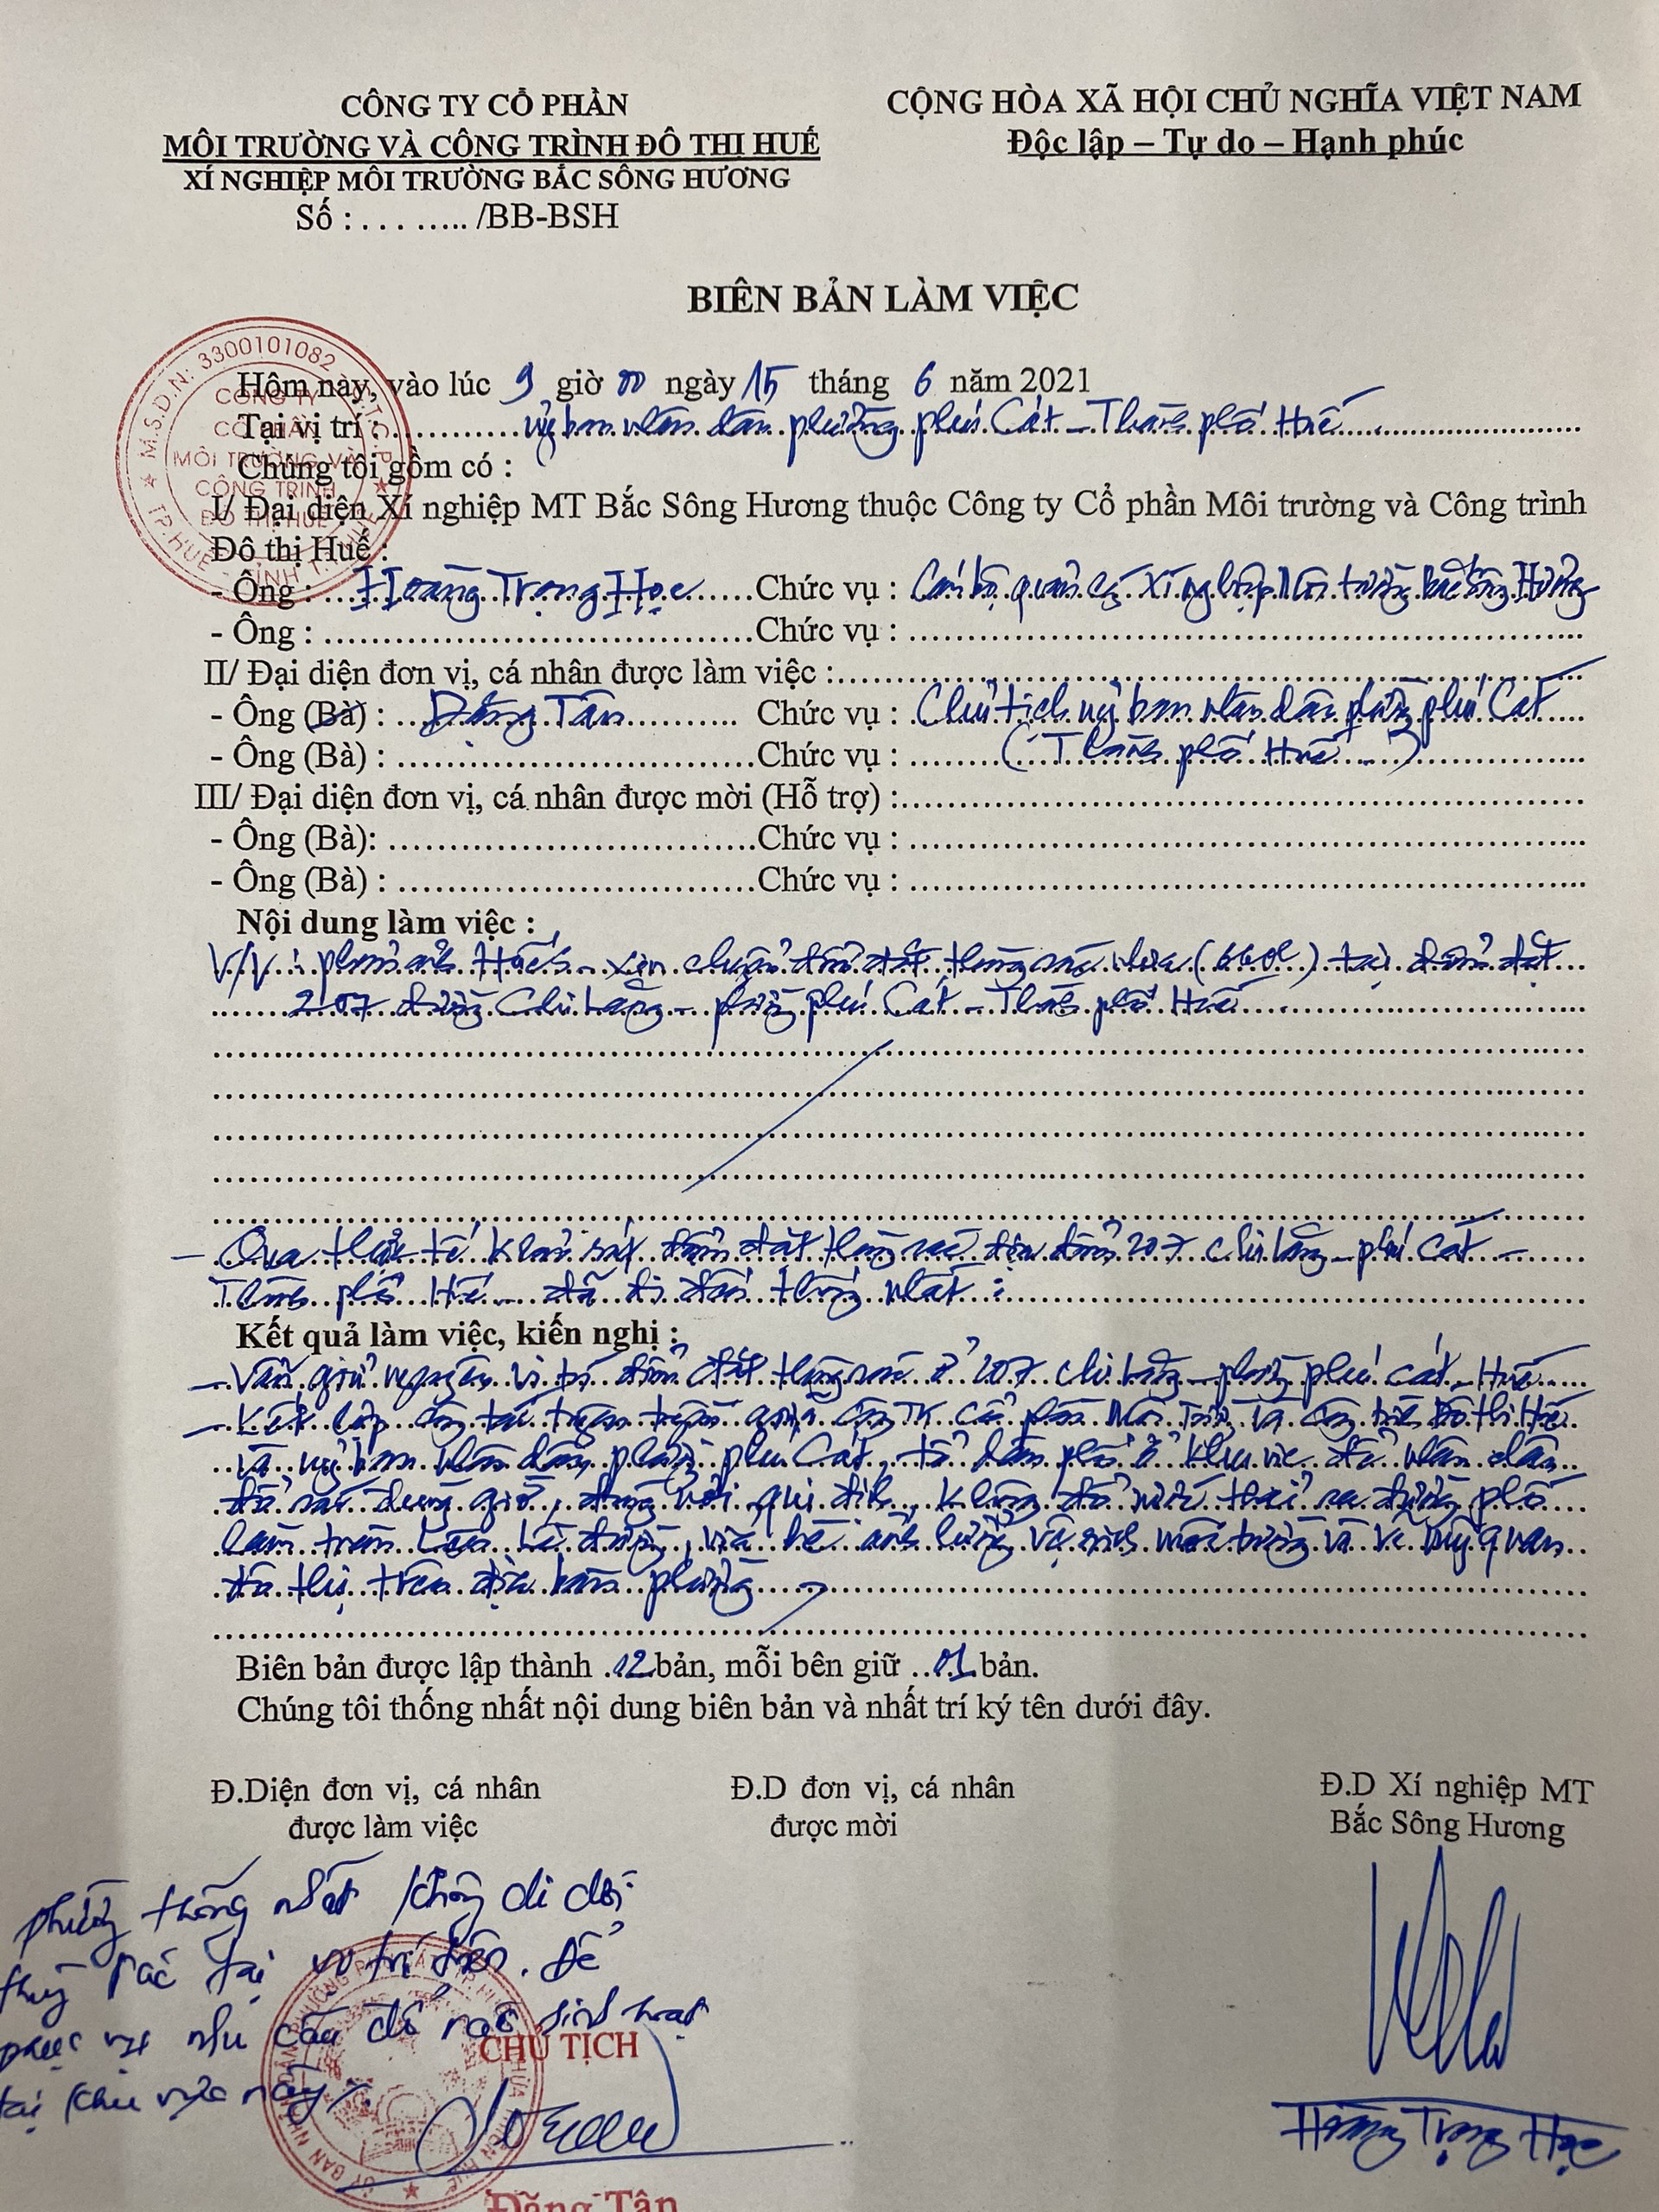 CÔNG TY CỔ PHẦN
MÔI TRƯỜNG VÀ CÔNG TRÌNH ĐÔ THỊ HUẾ
XÍ NGHIỆP MÔI TRƯỜNG BẮC SÔNG HƯƠNG
Số : . . . ….. /BB-BSH
CỘNG HÒA XÃ HỘI CHỦ NGHĨA VIỆT NAM
Độc lập – Tự do – Hạnh phúc
BIÊN BẢN LÀM VIỆC
M.S.D.N: 3300101082
CÔNG TY CỔ PHẦN MÔI TRƯỜNG VÀ CÔNG TRÌNH ĐÔ THỊ HUẾ
Hôm này, vào lúc 9 giờ 00 ngày 15 tháng 6 năm 2021
Tại vị trí : uỷ ban nhân dân phường phú Cát – Thành phố Huế
Chúng tôi gồm có :
I/ Đại diện Xí nghiệp MT Bắc Sông Hương thuộc Công ty Cổ phần Môi trường và Công trình
Đô thị Huế :
- Ông : Hoàng Trọng Học Chức vụ : Cán bộ quản lý xí nghiệp Môi trường bắc sông Hương
- Ông : Chức vụ :
II/ Đại diện đơn vị, cá nhân được làm việc :
- Ông (Bà) : Đặng Tân Chức vụ : Chủ tịch uỷ ban nhân dân phường phú Cát
- Ông (Bà) : Chức vụ : (Thành phố Huế)
III/ Đại diện đơn vị, cá nhân được mời (Hỗ trợ) :
- Ông (Bà): Chức vụ :
- Ông (Bà) : Chức vụ :
Nội dung làm việc :
V/V : phản ánh HueS – xin chuyển điểm đặt thùng rác nhựa (660l) tại điểm đặt
207 đường Chi Lăng – phường phú Cát – Thành phố Huế
– Qua thực tế khảo sát điểm đặt thùng rác địa điểm 207 chi lăng – phú Cát –
Thành phố Huế – đã đi đến thống nhất :
Kết quả làm việc, kiến nghị :
– Vẫn giữ nguyên vị trí điểm đặt thùng rác ở 207 chi Lăng – phường phú cát – Huế
– Kết hợp công tác tuyên truyền giữa công ty cổ phần Môi Trường và Công trình Đô thị Huế
và uỷ ban nhân dân phường phú Cát, tổ dân phố ở khu vực để nhân dân
đổ rác đúng giờ, đúng nơi qui định, không để nước thải ra đường phố
làm tràn lan lề đường, vỉa hè ảnh hưởng vệ sinh môi trường và vẻ mỹ quan
đô thị trên địa bàn phường
Biên bản được lập thành 02 bản, mỗi bên giữ 01 bản.
Chúng tôi thống nhất nội dung biên bản và nhất trí ký tên dưới đây.
Đ.Diện đơn vị, cá nhân
được làm việc
Đ.D đơn vị, cá nhân
được mời
Đ.D Xí nghiệp MT
Bắc Sông Hương
phường thống nhất không di dời
thùng rác tại vị trí trên. Để
phục vụ nhu cầu để rác sinh hoạt
tại khu vực này
CHỦ TỊCH
Đặng Tân
Hoàng Trọng Học